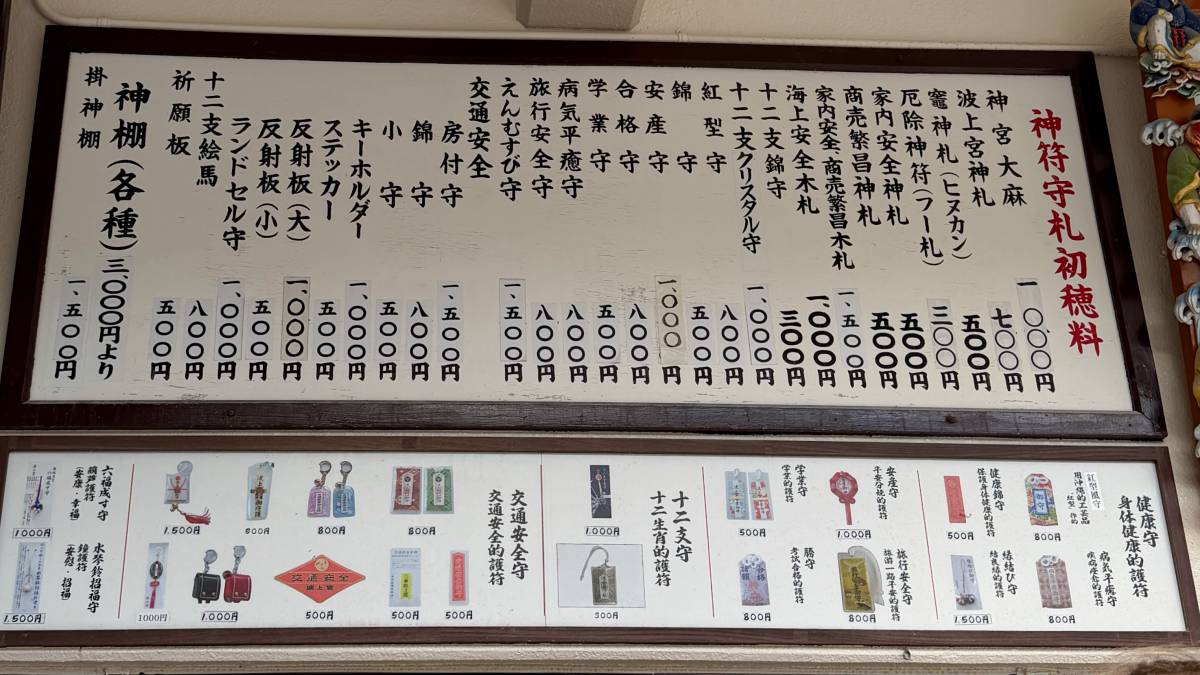 神符守札初穂料
神宮大麻 一〇〇〇円
波上宮神札 七〇〇円
竈神札(ヒヌカン) 五〇〇円
厄除神符(フー札) 二〇〇円
家内安全神札 五〇〇円
商売繁昌神札 五〇〇円
家内安全、商売繁昌木札 一、五〇〇円
海上安全木札 一、〇〇〇円
十二支錦守 三〇〇円
十二支クリスタル守 一、〇〇〇円
紅型守 八〇〇円
錦守 五〇〇円
安産守 一、〇〇〇円
合格守 八〇〇円
学業守 五〇〇円
病気平癒守 八〇〇円
旅行安全守 八〇〇円
えんむすび守 一、五〇〇円
交通安全
房付守 一、五〇〇円
錦守 八〇〇円
小守 五〇〇円
キーホルダー 一、〇〇〇円
ステッカー 五〇〇円
反射板(大) 一、〇〇〇円
反射板(小) 五〇〇円
ランドセル守 一、〇〇〇円
十二支絵馬 八〇〇円
祈願板 五〇〇円
神棚(各種) 三、〇〇〇円より
掛神棚 一、五〇〇円
健康守
身体健康的護符
紅型風守
用沖縄的工芸品
"紅型"作的
800円
健康錦守
保護身体健康的護符
500円
病気平癒守
疾病痊愈的護符
800円
縁結び守
結良縁的護符
1.500円
安産守
平安分娩的護符
1.000円
学業守
学業的護符
500円
旅行安全守
旅游一路平安的護符
800円
勝守
考試合格的護符
800円
十二支守
十二生肖的護符
1.000円
300円
交通安全守
交通安全的護符
800円
800円
600円
1.500円
500円
500円
交通安全
波上宮
500円
1.000円
1000円
六福成寸守
葫芦護符
(安康・幸福)
1.000円
水琴鈴招福守
鐘護符
(安慰・招福)
1.500円